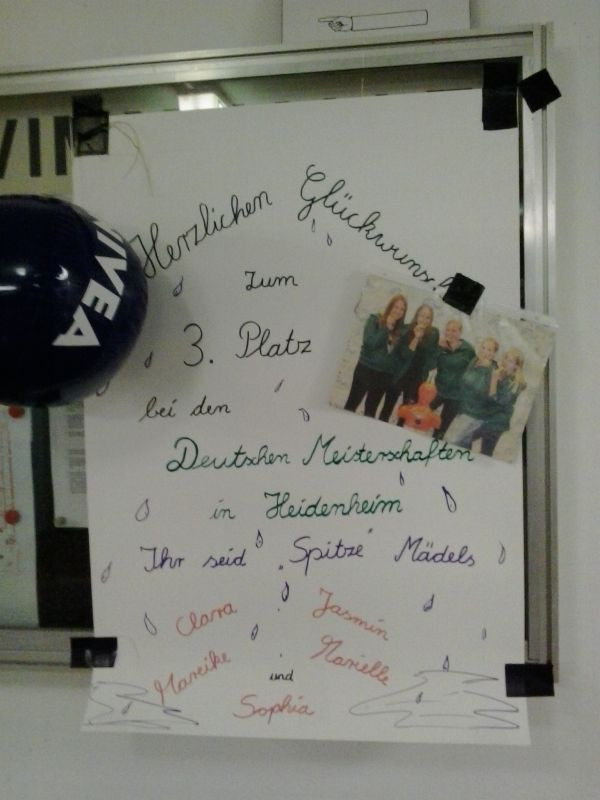 Herzlichen
zum
3. Platz
bei den
Deutschen Meisterschaften
in Heidenheim
Ihr seid „Spitze" Mädels
Clara Jasmin
Mareike Marielle
und
Sophia
NIVEA